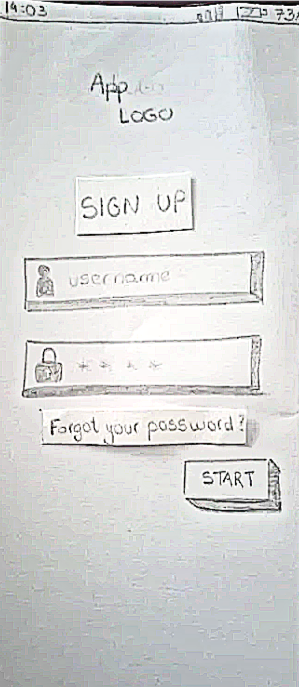 14:03 73%
App
LOGO
SIGN UP
username
****
Forgot your password?
START